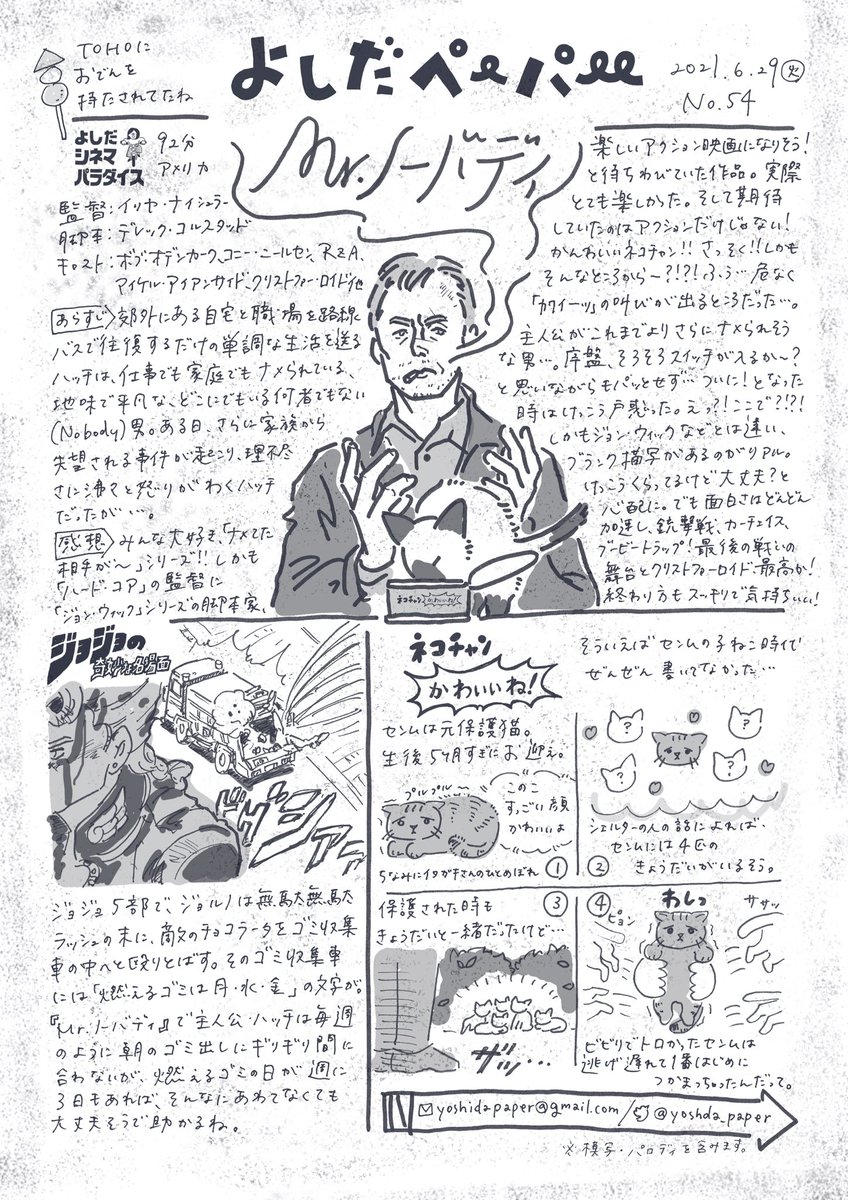 TOHOに
おでんを
持たされてたね
よしだペーパー
2021.6.29㊋
No.54
よしだ
シネマ
パラダイス
92分
アメリカ
Mr.ノーバディ
監督:イリヤ・ナイシュラー
脚本:デレック・コルスタッド
キャスト:ボブ・オデンカーク、コニー・ニールセン、RZA、
マイケル・アイアンサイド、クリストファー・ロイド他
あらすじ 郊外にある自宅と職場を路線
バスで往復するだけの単調な生活を送る
ハッチは、仕事でも家庭でもナメられている、
地味で平凡な、どこにでもいる何者でもない
(Nobody)男。ある日、さらに家族から
失望される事件が起こり、理不尽
さに沸々と怒りがわくハッチ
だったが…。
感想 みんな大好き、「ナメてた
相手が〜」シリーズ!!しかも
「ハード・コア」の監督に
「ジョン・ウィック」シリーズの脚本家、
楽しいアクション映画になりそう!
と待ちわびていた作品。実際
とても楽しかった。そして期待
していたのはアクションだけじゃない!
かんわいいネコチャン!!さっそく!!しかも
そんなところから〜?!?!ふぅ…危なく
「カワイーッ」の叫びが出るところだった…。
主人公がこれまでよりさらにナメられそう
な男…。序盤、そろそろスイッチが入るか〜?
と思いながらもパッとせず…ついに!となった
時はけっこう戸惑った。えっ?!ここで?!?!
しかもジョン・ウィックなどとは違い、
ブランク描写があるのがリアル。
けっこうくらってるけど大丈夫?と
心配に。でも面白さはどんどん
加速し、銃撃戦、カーチェイス、
ブービートラップ!最後の戦いの
舞台とクリストファーロイド最高か!
終わり方もスッキリで気持ちいい!
ネコチャン かわいいね!
ジョジョの
奇妙な名場面
ドグシァアア
ジョジョ5部で、ジョルノは無駄無駄
ラッシュの末に、敵のチョコラータをゴミ収集
車の中へと殴りとばす。そのゴミ収集車
には「燃えるゴミは月・水・金」の文字が。
『Mr.ノーバディ』で主人公・ハッチは毎週
のように朝のゴミ出しにギリギリ間に
合わないが、燃えるゴミの日が週に
3日もあれば、そんなにあわてなくても
大丈夫そうで助かるね。
ネコチャン
かわいいね!
センムは元保護猫。
生後5ヶ月すぎにお迎え。
プルプル〜
このこ
すっごい顔
かわいいよ
ちなみにイタガキさんのひとめぼれ
①
そういえばセンムの子ねこ時代
ぜんぜん書いてなかった…
? ? ? ?
シェルターの人の話によれば、
②
センムには4匹の
きょうだいがいるそう。
保護された時も
③
きょうだいと一緒だったけど…
ザッ…
④
わしっ
ピョン
ササッ
ビビリでトロかったセンムは
逃げ遅れて1番はじめに
つかまっちゃったんだって。
yoshidapaper@gmail.com/@yoshda_paper
※模写・パロディを含みます。